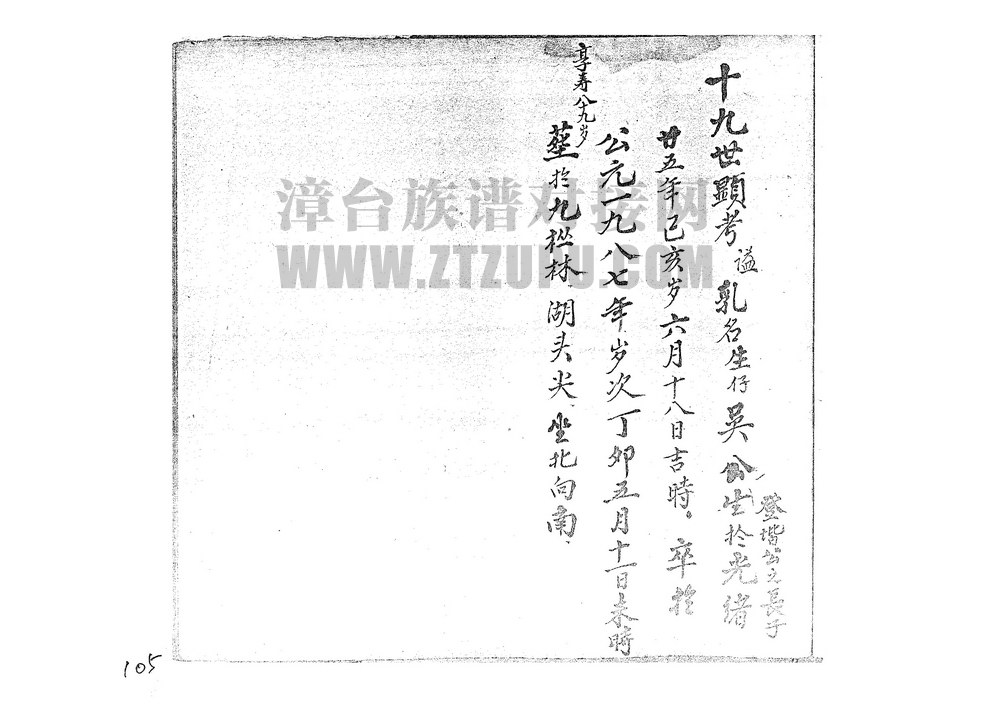 十九世顯考謚乳名生仔吳公生於光绪
登堦公之長子
廿五年己亥岁六月十八日吉時，卒於
公元一九八七年岁次丁卯五月十一日未時
享寿八十九岁
塟於九枞林、湖头尖、坐北向南、
漳台族谱对接网
WWW.ZTZUPU.COM
105